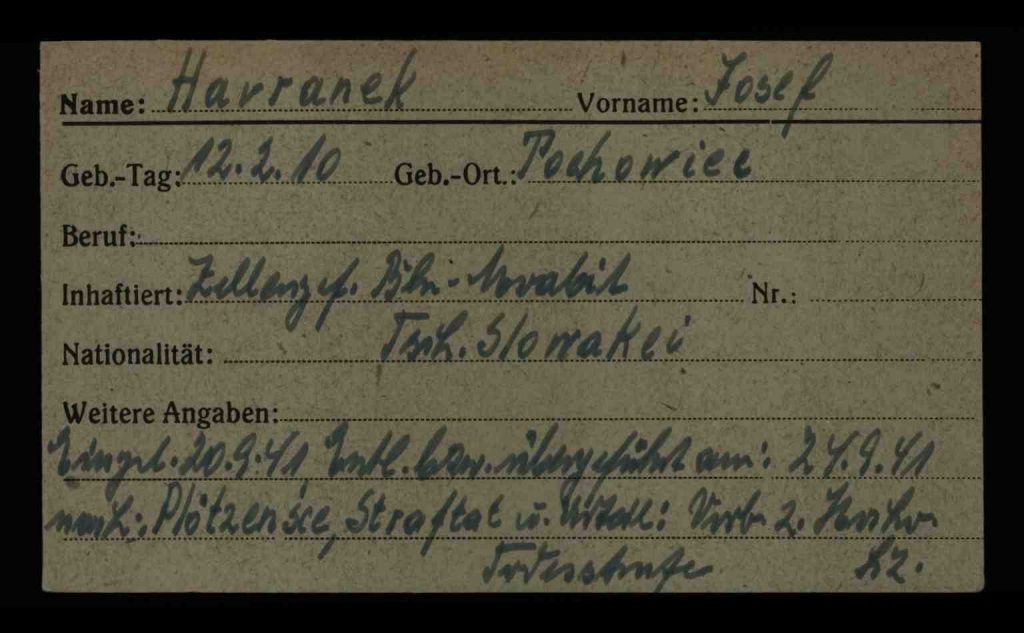 Name: Havranek Vorname: Josef
Geb.-Tag: 12.2.10 Geb.-Ort.: Pochowiec
Beruf:
Inhaftiert: Zellengef. Bln-Moabit Nr.:
Nationalität: Tsch. Slowakei
Weitere Angaben:
Eingel. 20.9.41 Entl. bzw. übergeführt am: 24.9.41
nach: Plötzensee, Straftat u. Urteil: Vorb. z. Hochv.
Todesstrafe